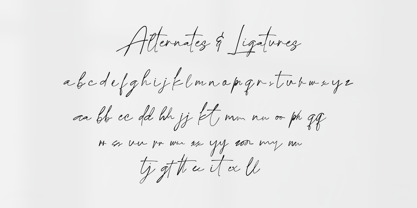 Alternates & Ligatures
a b c d e f g h i j k l m n o p q r s t u v w x y z
aa bb cc dd hh jj kt mm nn oo pk qq
rr ss uu vv ww xx yy zoo my nn
tj gt th ee it ex ll